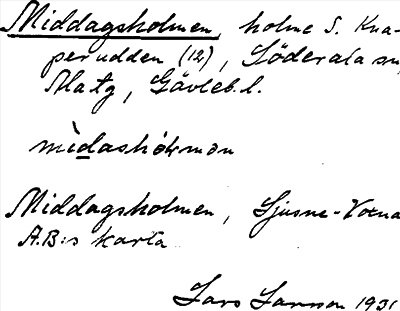 Middagsholmen, holme S. Kna-
perudden (12), Söderala sn,
Matg, Gävleb. l.
mìdashòlmən
Middagsholmen, Ljusne-Voxna
A.B:s karta
Lars Larsson 1931